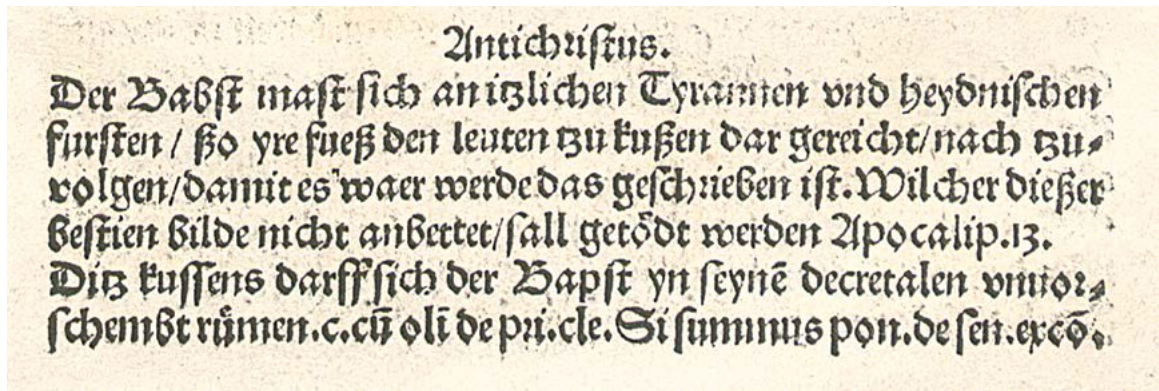 Antichristus.
Der Babst mast sich an itzlichen Tyrannen vnd heydnischen
fursten / ßo yre fueß den leuten tzu kußen dar gereicht/nach tzu⸗
volgen/damit es waer werde das geschrieben ist. Wilcher dießer
bestien bilde nicht anbettet/sall getödt werden Apocalip.13.
Ditz kussens darff sich der Bapst yn seynē decretalen vnuor⸗
schembt rümen.c.cū oli de pri.cle. Si summus pon.de sen.excō.